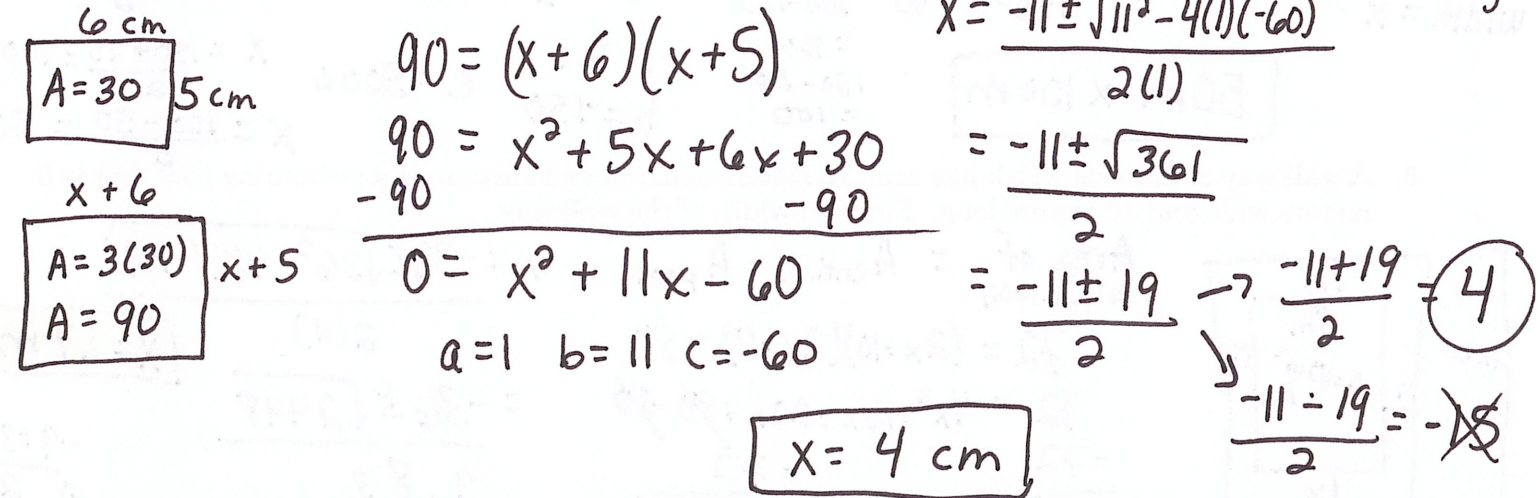 6 cm
A = 30
5 cm
x + 6
A = 3(30)
A = 90
x + 5
90 = (x + 6)(x + 5)
90 = x² + 5x + 6x + 30
-90 -90
0 = x² + 11x - 60
a = 1 b = 11 c = -60
x = 4 cm
x = (-11 ± √(11² - 4(1)(-60)))/2(1)
= (-11 ± √361)/2
= (-11 ± 19)/2 → (-11 + 19)/2 = 4
↘ (-11 - 19)/2 = -15